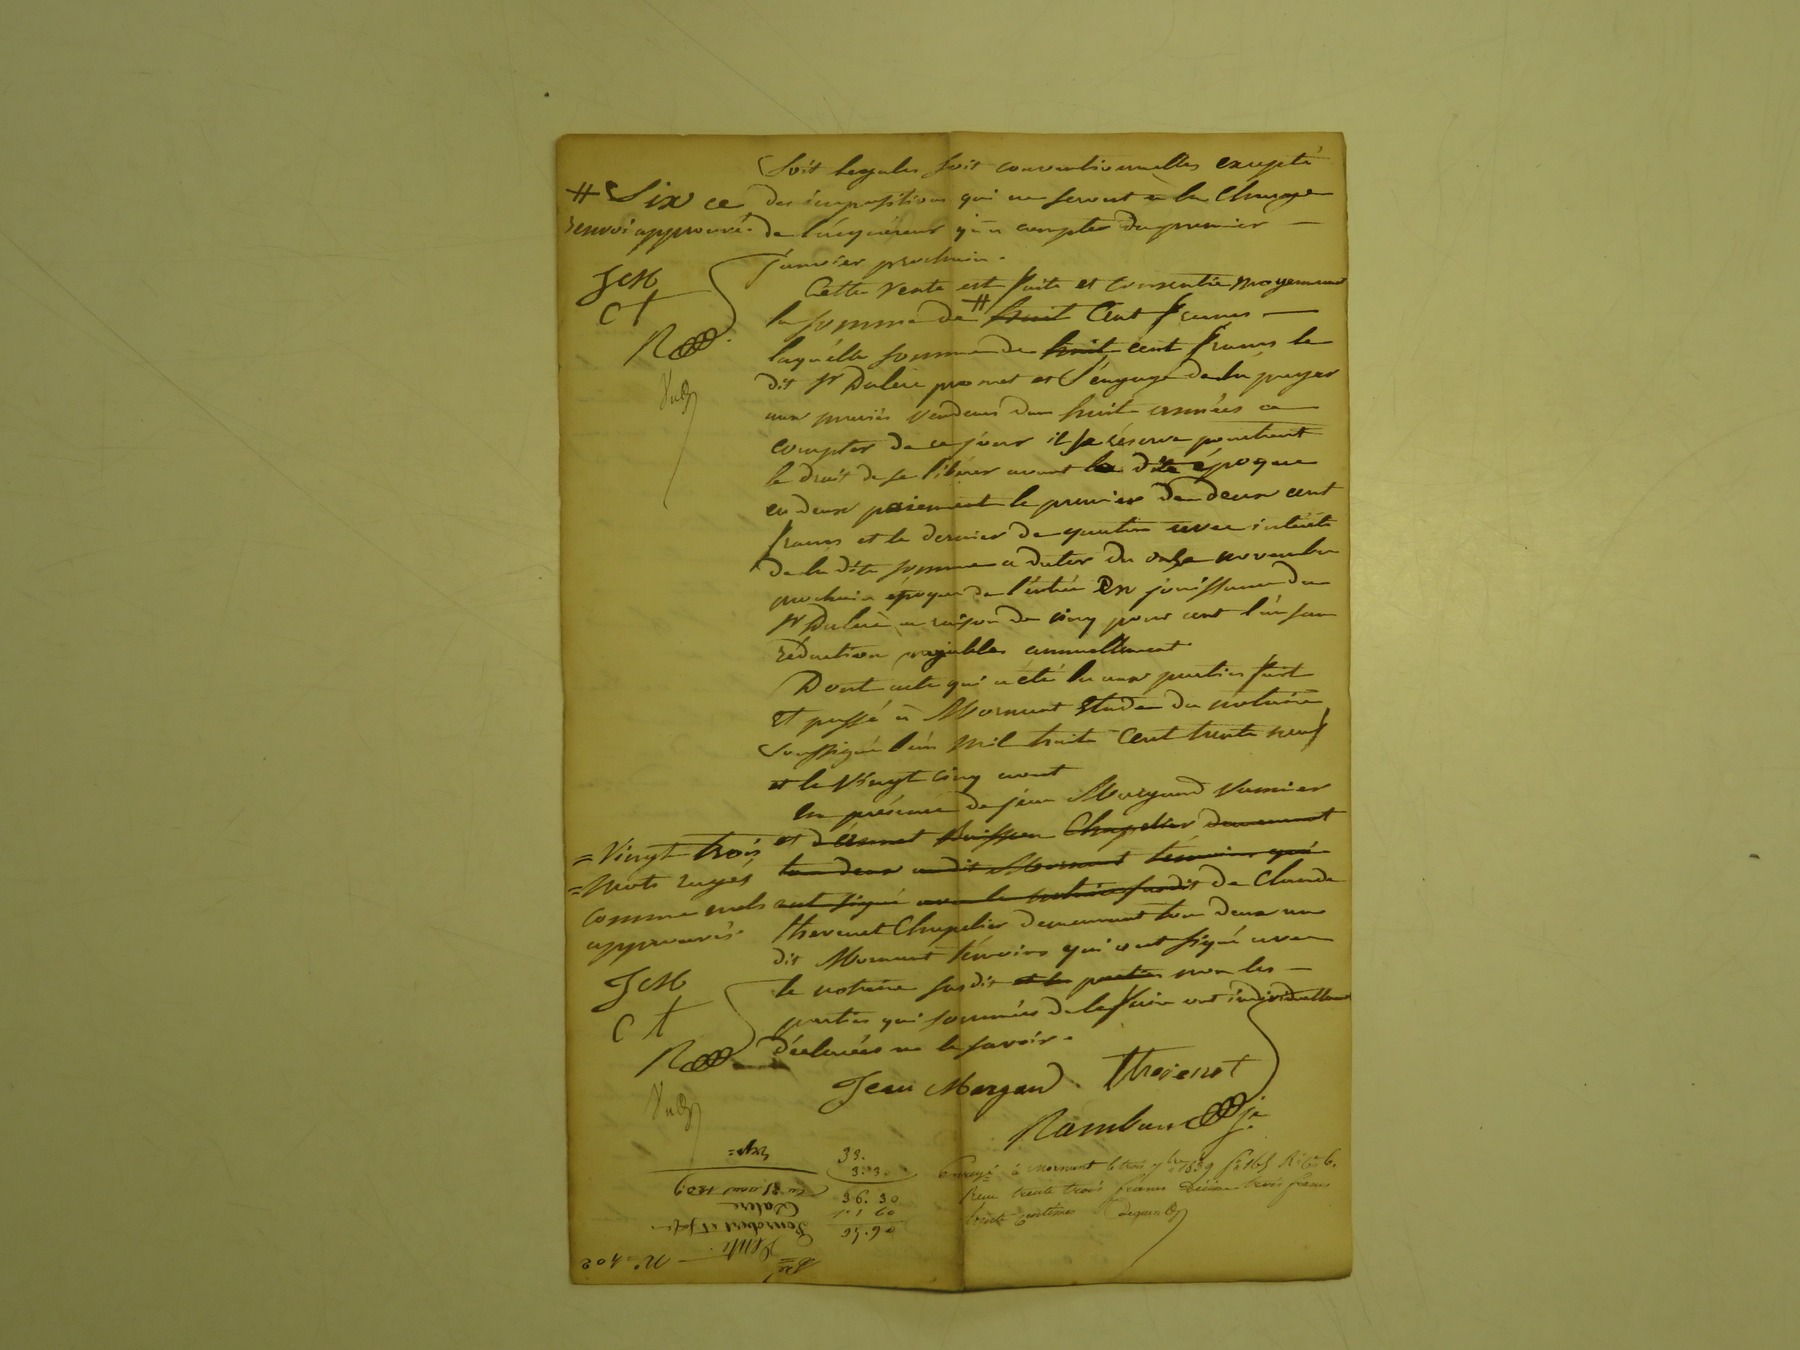 Soit legales soit conventionnelles excepté
des impositions qui ne seront a la Charge
de l'acquéreur qu'a compter du premier
janvier prochain.
Cette Vente est faite et consentie moyennant
la somme de # huit Cent francs
laquelle somme de huit cent francs le
dit Sr Dalere promet et s'engage de la payer
aux mariés vendeurs dans huit années a
compter de ce jour il se réserve pourtant
le droit de se libérer avant la dite époque
en deux paiement le premier de deux cent
francs et le dernier de quatre avec intérêts
de la dite somme a dater du onze novembre
prochain époque de l'entrée En jouissance du
Sr Dalere a raison de cinq pour cent l'an sans
réduction payables annuellement
Dont acte qui a été lu aux parties fait
et passé à Mornant Etude du notaire
Soussigné l'an Mil huit Cent trente neuf
et le Vingt cinq aout
En présence de jean Margand Vannier
et Chapelier demeurant
tou deux au dit Mornant témoins qui
ont signé avec le notaire susdit de Claude
thevenet Chapelier demeurant tou deux au
dit Mornant témoins qui ont signé avec
le notaire susdit et les parties non les
parties qui sommées de le faire ont individuellement
déclarées ne le savoir.
Jean Margand thevenet
# Six ce
renvoi approuvé.
JCM
C t
R
Vu
= Vingt trois
= Mots rayés
comme nuls
approuvés.
JCM
C t
R
Vu
33.
3.30
36 30
à Mornant le trois 7bre 1839 fo 165 Ro Cse 6.
Reçu trente trois francs Décime trois francs
trente Centimes
Exp=
Du 25 aout 1839
Dalere
Vente
No 402